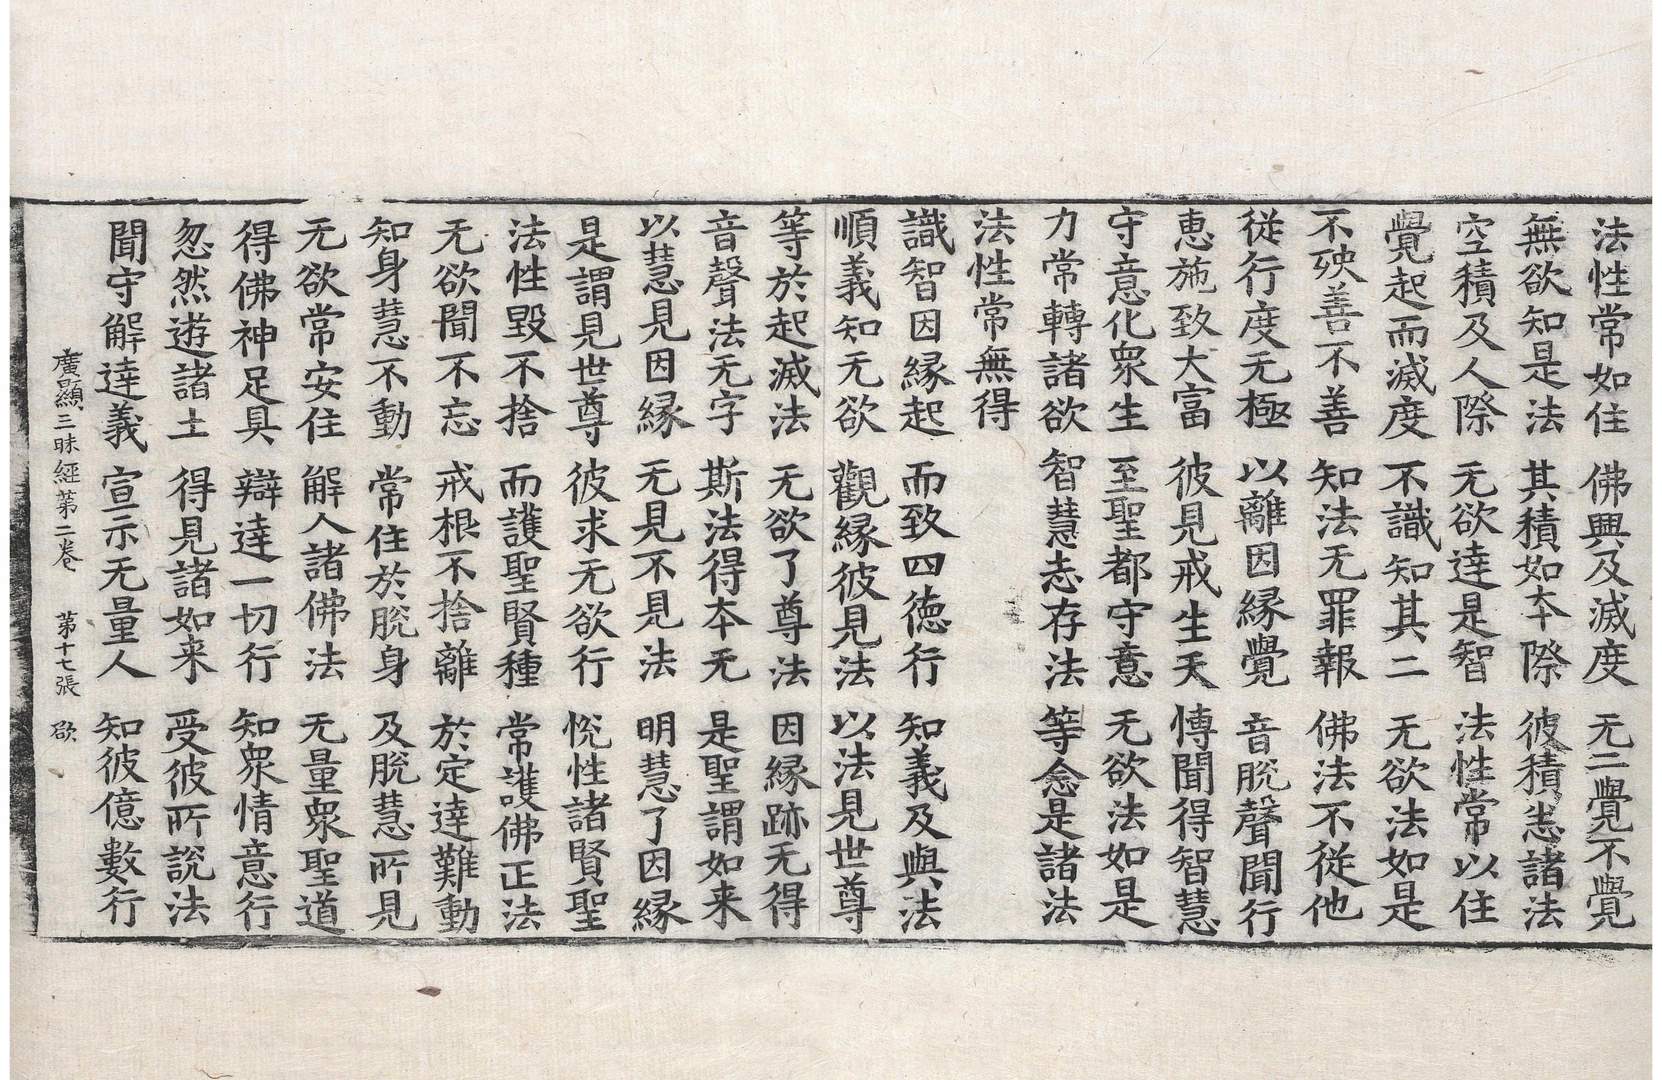 法性常如住　佛興及滅度　无二覺不覺
無欲知是法　其積如夲際　彼積恙諸法
空積及人際　无欲達是智　法性常以住
覺起而滅度　不識知其二　无欲法如是
不殃善不善　知法无罪報　佛法不從他
從行度无極　以離因緣覺　音脫聲聞行
惠施致大富　彼見戒生天　愽聞得智慧
守意化衆生　至聖都守意　无欲法如是
力常轉諸欲　智慧志存法　等念是諸法
法性常無得
識智因緣起　而致四德行　知義及與法
順義知无欲　觀緣彼見法　以法見世尊
等於起滅法　无欲了尊法　因緣跡无得
音聲法无字　斯法得夲无　是聖謂如来
以慧見因緣　无見不見法　明慧了因緣
是謂見世尊　彼求无欲行　恱性諸賢聖
法性毀不捨　而護聖賢種　常護佛正法
无欲聞不忘　戒根不捨離　於定達難動
知身慧不動　常住於脫身　及脫慧所見
无欲常安住　解人諸佛法　无量衆聖道
得佛神足具　辯達一切行　知衆情意行
忽然遊諸土　得見諸如来　受彼所說法
聞守解達義　宣示无量人　知彼億數行
廣顯三昧經第二卷　第十七張　欲